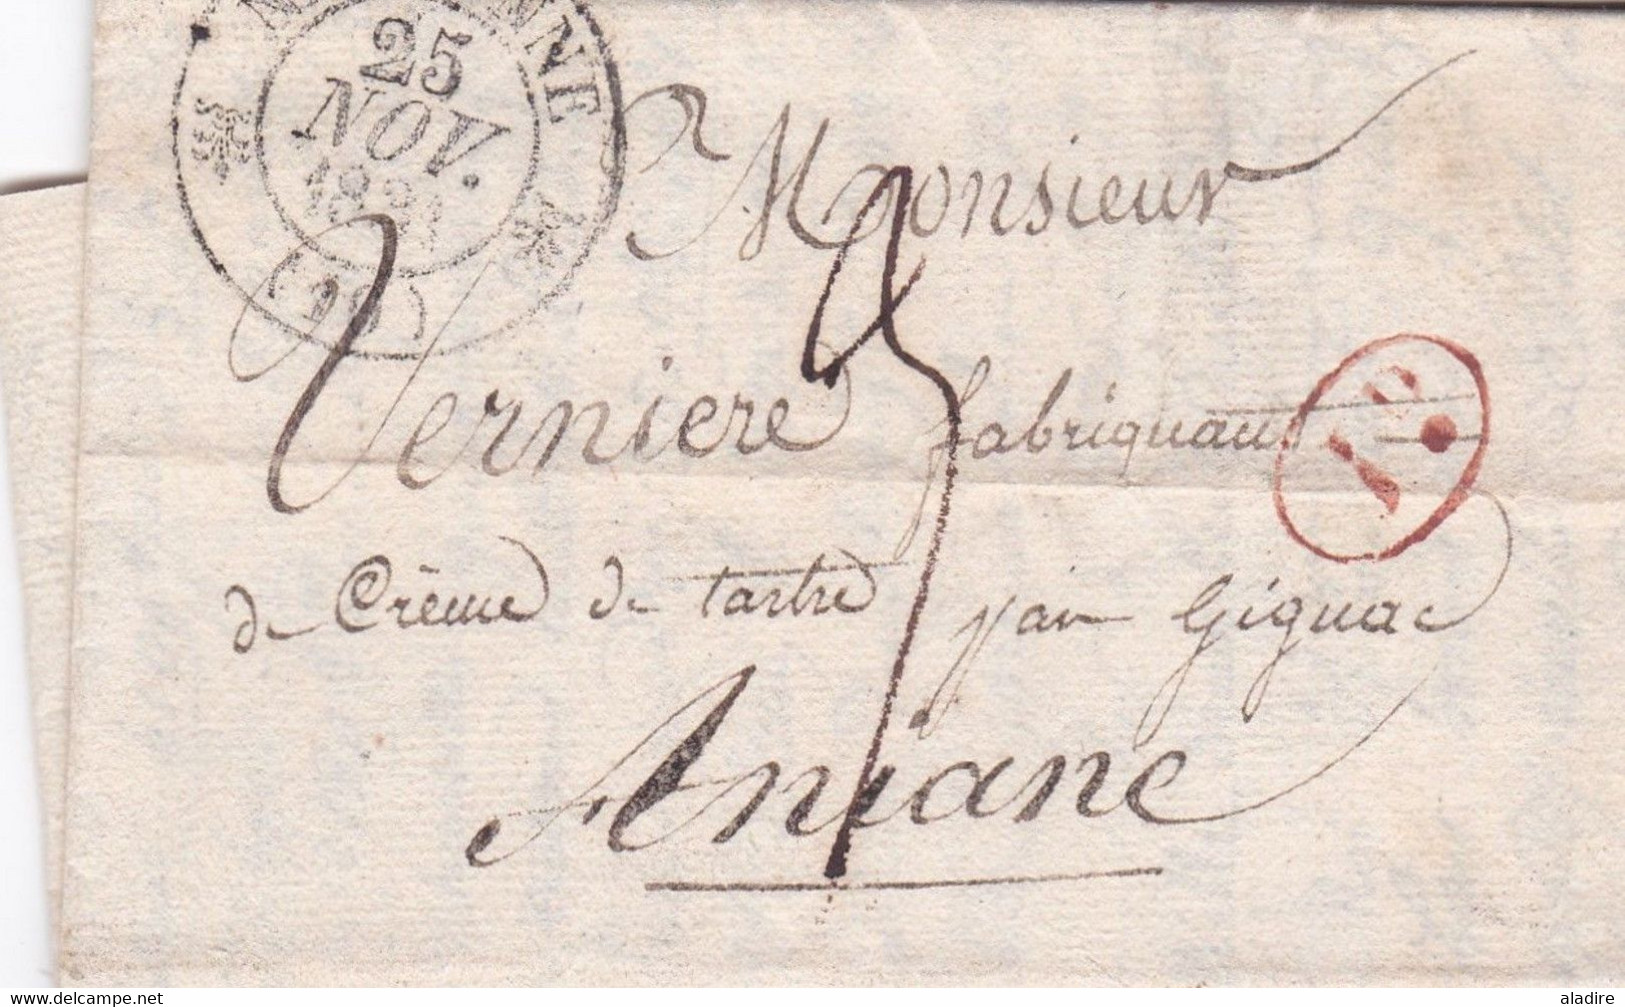 25
NOV.
(10)
Monsieur
Verniere fabriquant
de Crême de tartre par Gignac
Aniane
www.delcampe.net
aladire